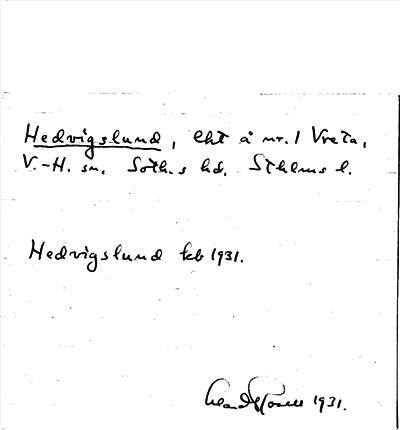 Hedvigslund, lht å nr. 1 Vreta,
V.-H. sn. Soth.s hd. Sthlms l.
Hedvigslund kb 1931.
1931.